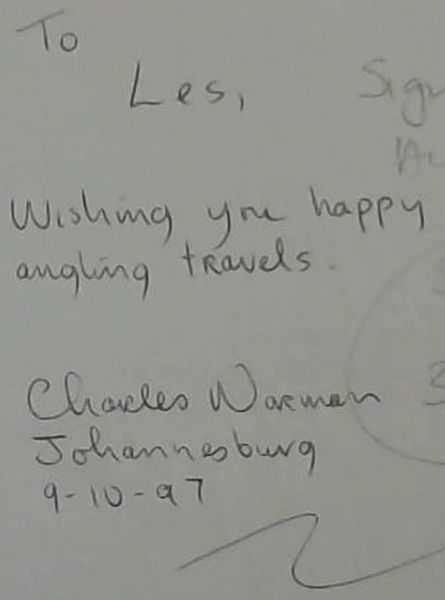 To
Les,
Wishing you happy
angling travels.
Charles Norman
Johannesburg
9-10-97